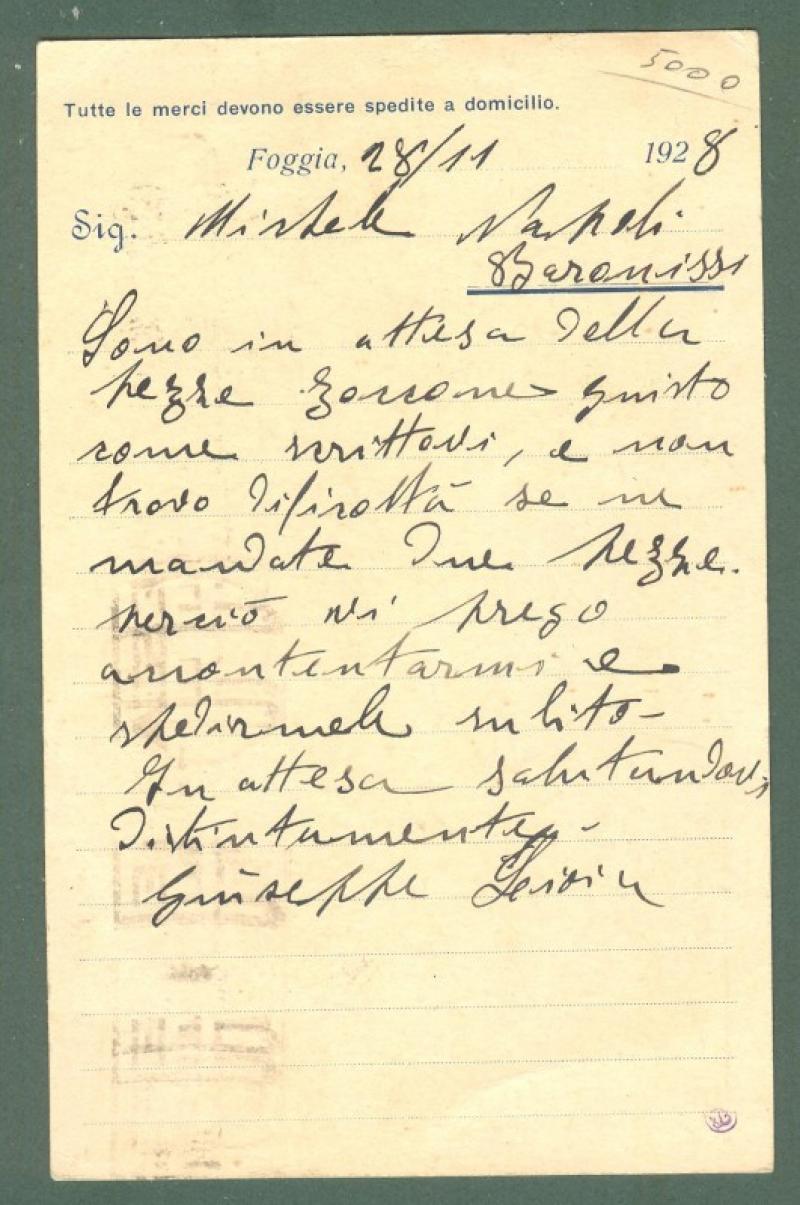 5000
Tutte le merci devono essere spedite a domicilio.
Foggia, 28/11 1928
Sig. Michele Napoli
Baronissi
Sono in attesa della
pezze zoccone giusto
come scrittovi, e non
trovo dificoltà se ne
mandate due pezze.
perciò vi prego
accontentarmi e
spedirmele subito-
In attesa salutandovi
Distintamente-
Giuseppe